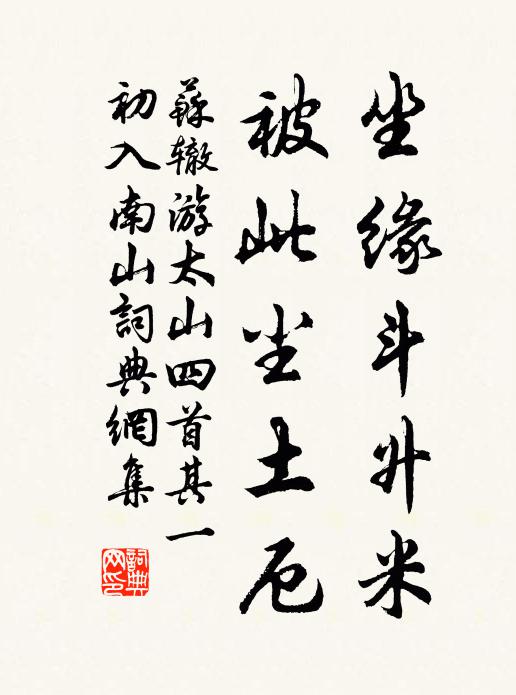 坐缘斗升米
被此尘土厄
蘇辙游太山四首其一
初入南山詞典網集
詞典
网印